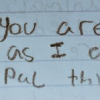 you are
as I
put thi